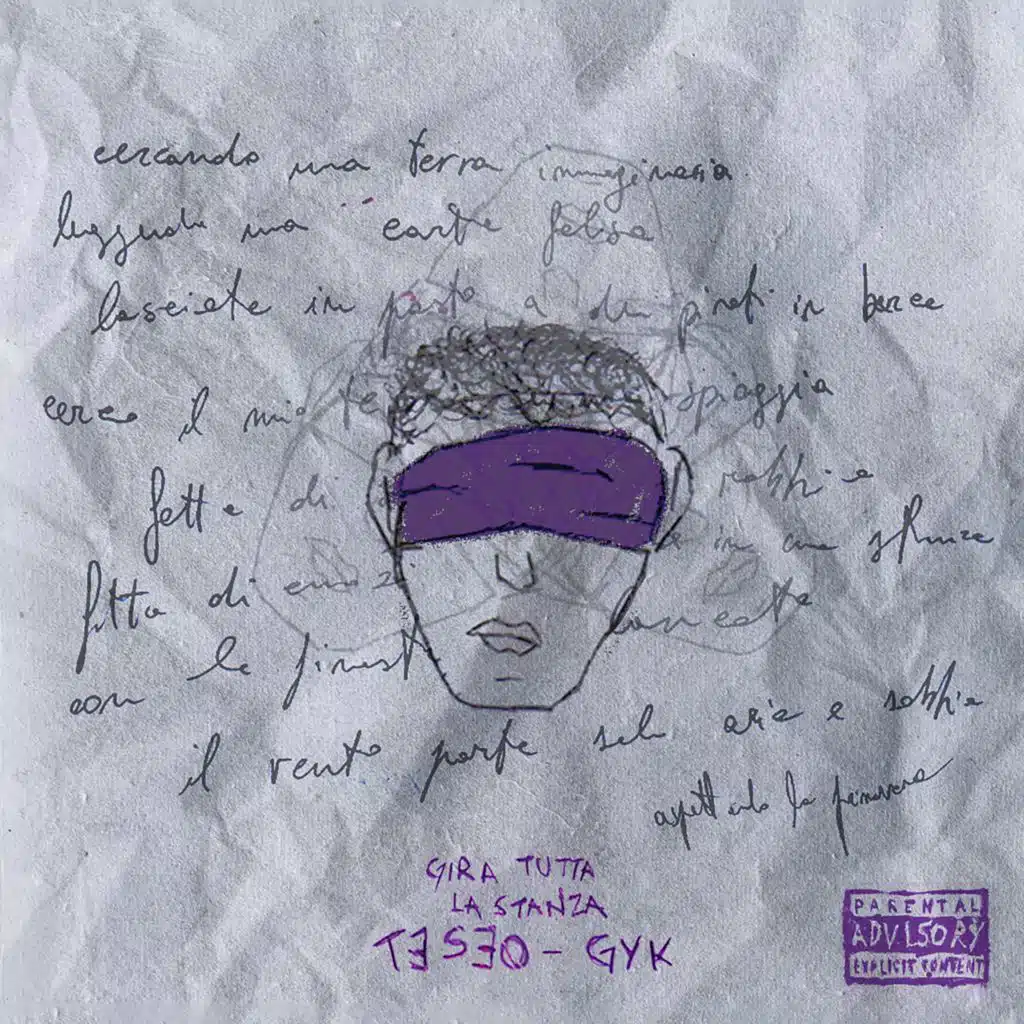 cercando una terra immaginaria
leggendo una carta falsa
lasciata in pasto a dei pirati in barca
cerco il mio te spiaggia
fatta di
fitta di emozi in una
con le finest
il vento porta solo aria e sabbia
aspettando la primavera
GIRA TUTTA
LA STANZA
TESEO - GYK
PARENTAL
ADVISORY
EXPLICIT CONTENT